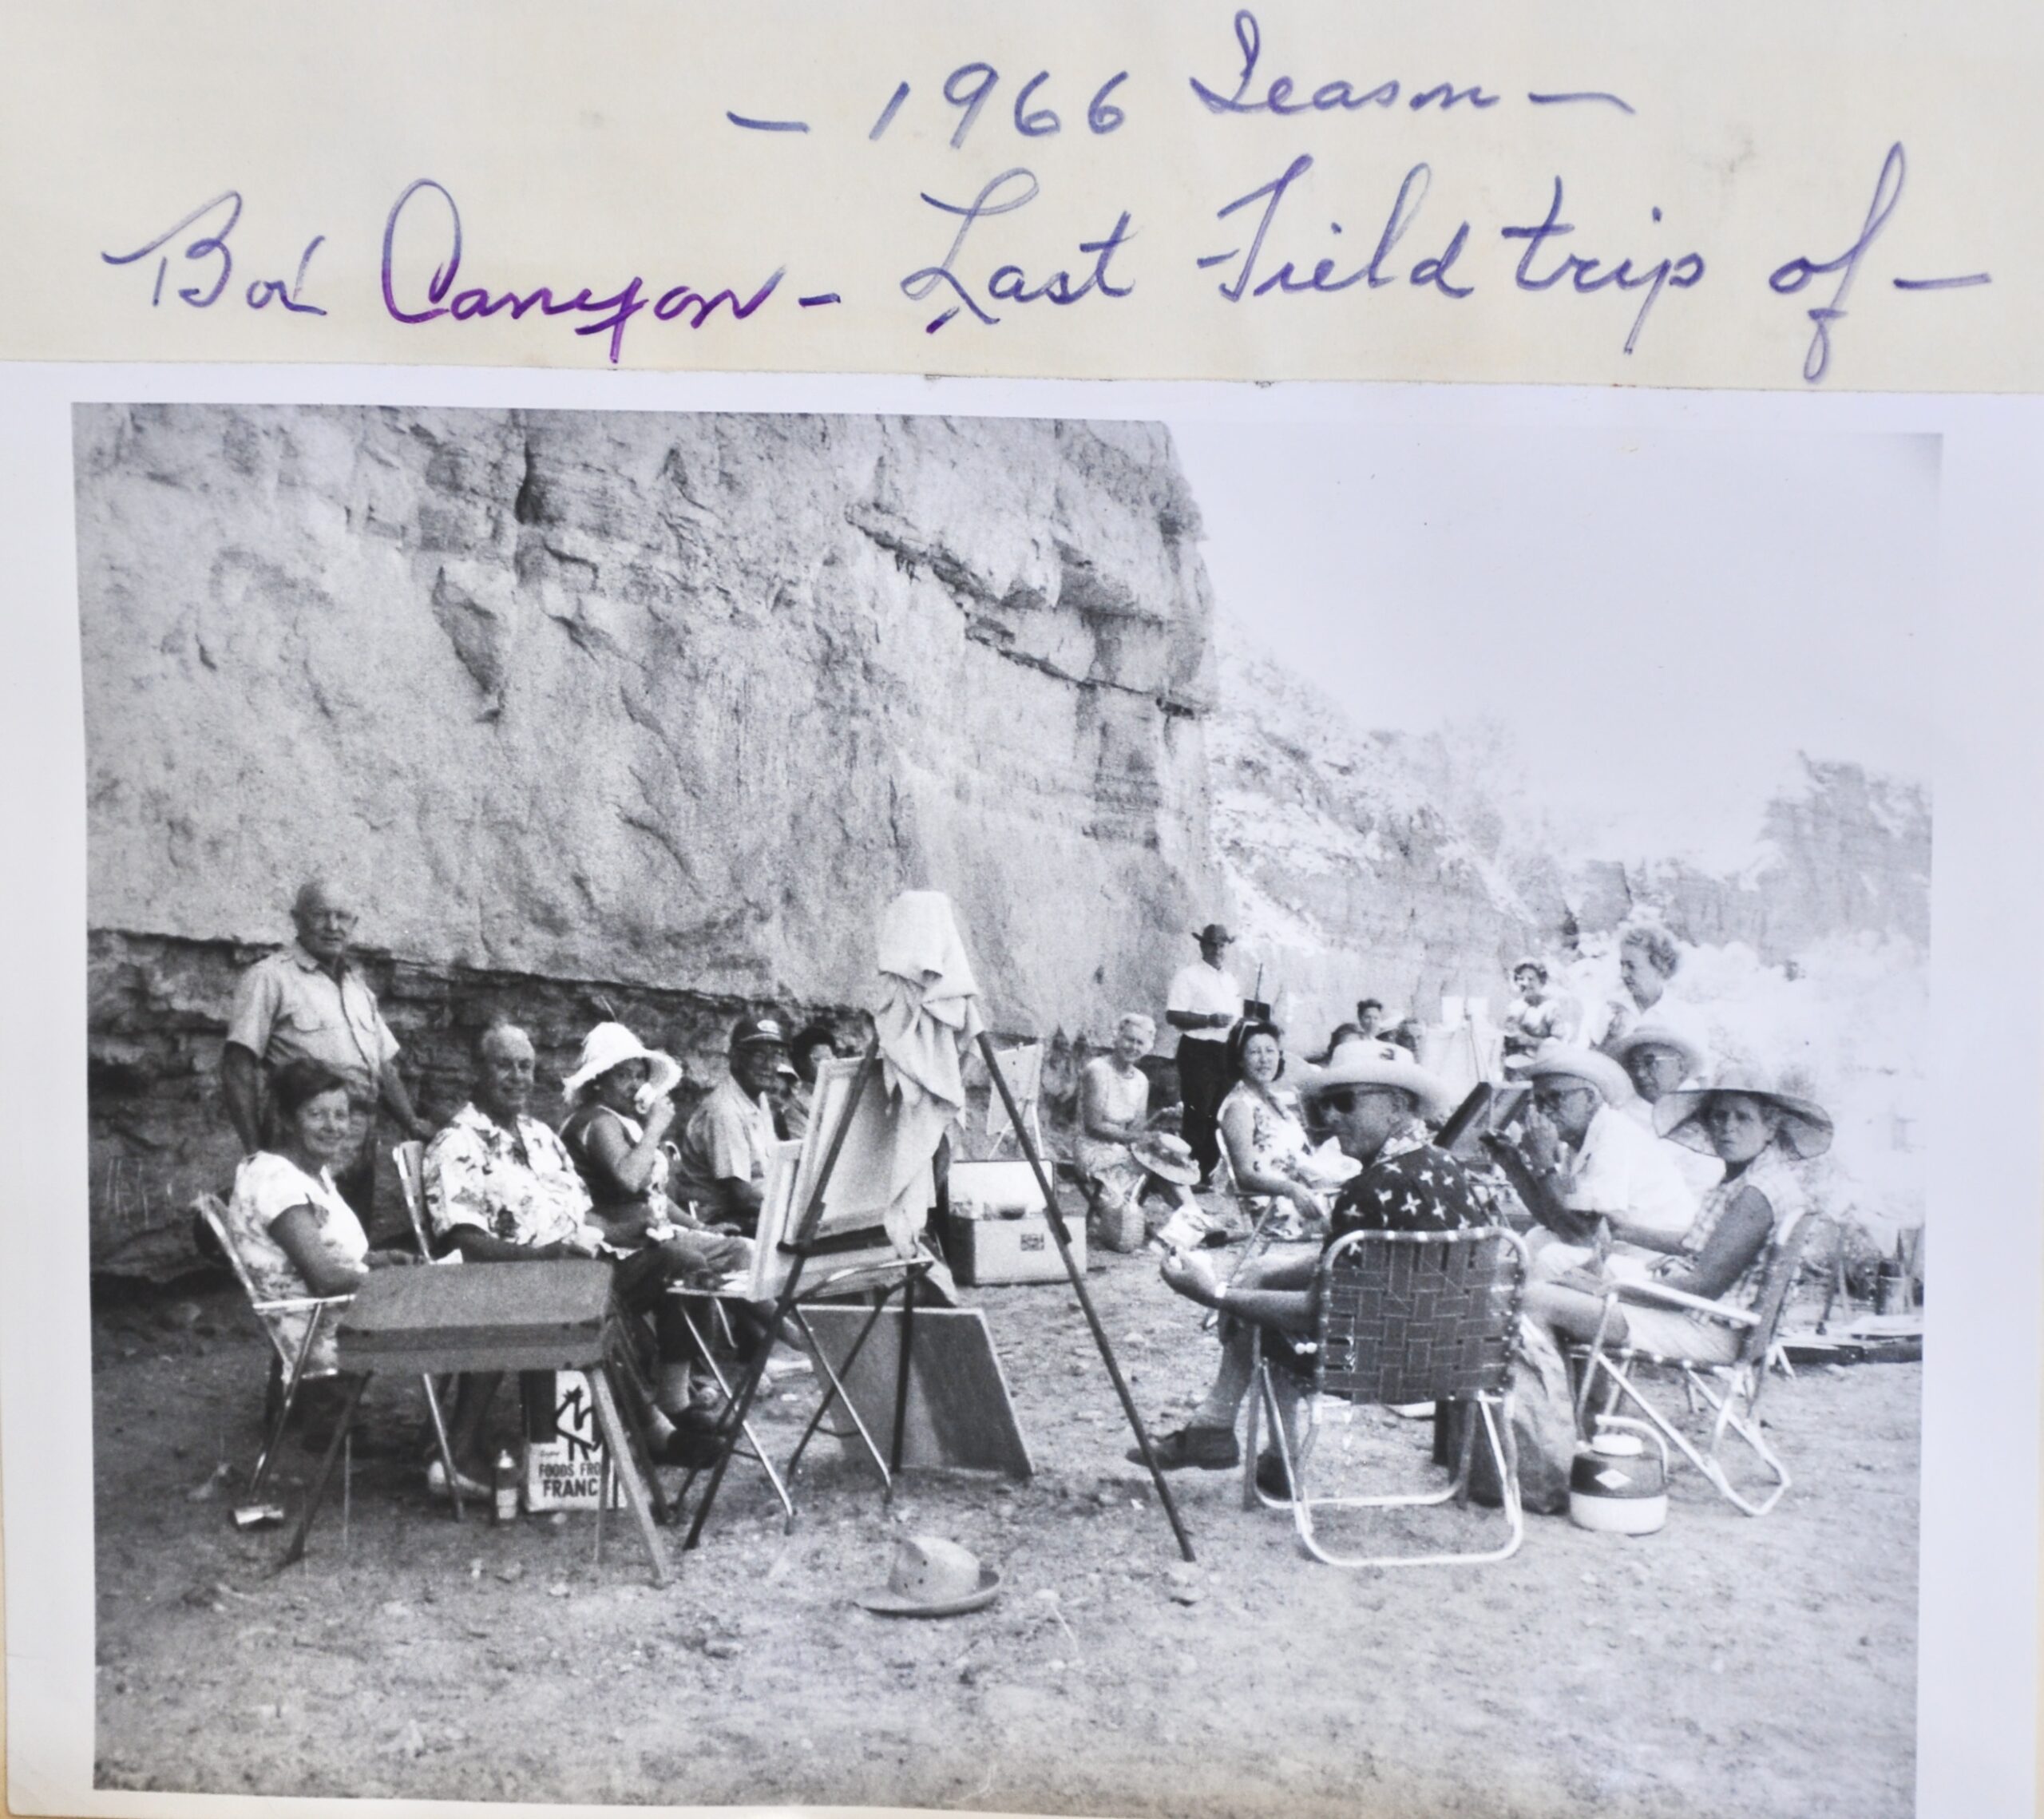 - 1966 Season -
Box Canyon - Last Field trip of -
FOODS FRO
FRANC